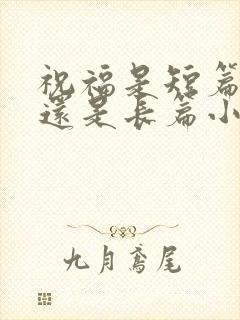 祝福是短篇
還是長篇小
九月鳶尾